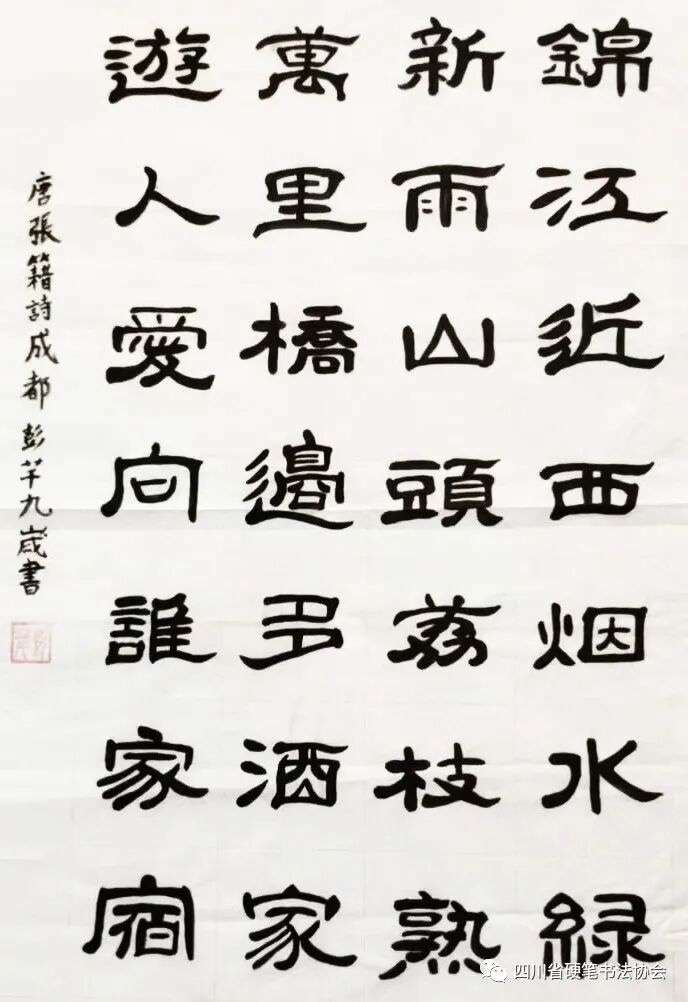 錦江近西烟水緑
新雨山頭荔枝熟
萬里橋邊多酒家
遊人愛向誰家宿
唐張籍詩成都 彭芊九歲書
四川省硬笔书法协会